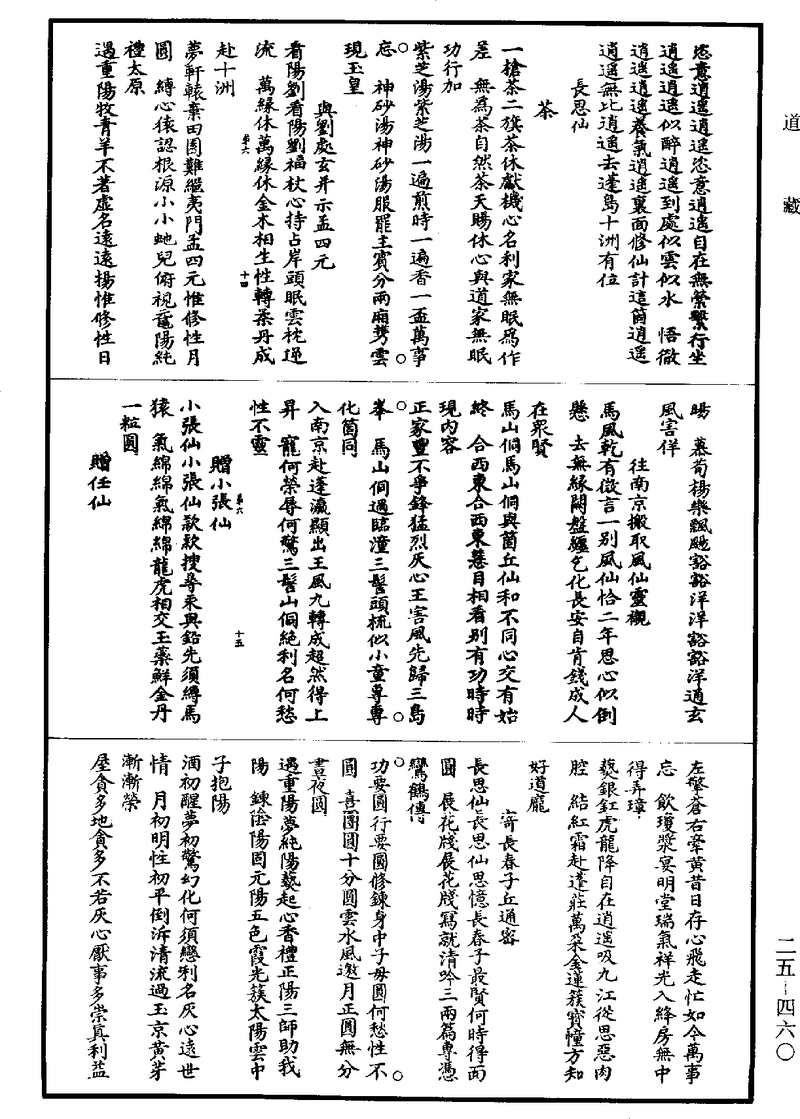 道藏
恣意逍遥逍遥恣意逍遥自在無縈繫行坐
逍遥逍遥似醉逍遥到處似雲似水　悟徹
逍遥逍遥養氣逍遥裏面修仙計這箇逍遥
逍遥無比逍遥去蓬島十洲有位
長思仙
茶
一槍茶二旗茶休獻機心名利家無眠爲作
差　無爲茶自然茶天賜休心與道家無眠
功行加
紫芝湯紫芝湯一遍煎時一遍香一盃萬事
忘　神砂湯神砂湯服罷主賓分兩廂雙雲
現玉皇
與劉處玄并示孟四元
看陽劉看陽劉福杖心持占岸頭眠雲枕逆
流　萬緣休萬緣休金木相生性轉柔丹成
赴十洲
夢軒轅棄田園難繼夷門孟四元惟修性月
圓　縛心猿認根源小小虵兒俯視黿陽純
禮太原
遇重陽牧青羊不著虚名遠遠揚惟修性日
暘　慕荀楊樂飄颺豁豁洋洋豁豁洋通玄
風害佯
往南京搬取風仙靈櫬
馬風乾有微言一别風仙恰二年思心似倒
懸　去無緣鬭盤纏乞化長安自肯錢成人
在衆賢
馬山侗馬山侗與箇丘仙和不同心交有始
終　合西東合西東驀目相看别有功時時
現内容
正家豐不爭鋒猛烈灰心王害風先歸三島
峯　馬山侗過臨潼三髻頭梳似小童專專
化箇同
入南京赴蓬瀛顯出王風九轉成超然得上
昇　寵何榮辱何驚三髻山侗絶利名何愁
性不靈
贈小張仙
小張仙小張仙歘歘搜尋汞與鉛先須縛馬
猿　氣綿綿氣綿綿龍虎相交玉蘂鮮金丹
一粒圓
贈任仙
左擎蒼右牽黄昔日存心飛走忙如今萬事
忘　飲瓊漿宴明堂瑞氣祥光入絳房無中
得弄璋
爇銀釭虎龍降自在逍遥吸九江從思惡肉
腔　結紅霜赴蓬莊萬朵金蓮簇寶幢方知
好道龐
寄長春子丘通密
長思仙長思仙思憶長春子最賢何時得面
圓　展花牋展花牋寫就清吟三兩篇專憑
鸞鶴傳
功要圓行要圓修鍊身中子母圓何愁性不
圓　喜團圓十分圓雲水風邀月正圓無分
晝夜圓
遇重陽夢純陽爇起心香禮正陽三師助我
陽　鍊陰陽固元陽五色霞光簇太陽雲中
子抱陽
酒初醒夢初驚幻化何須戀利名灰心遠世
情　月初明性初平倒泝清流過玉京黄芽
漸漸榮
屋貪多地貪多不若灰心厭事多崇真利益
卷六
十四
卷六
十五
二五-四六〇